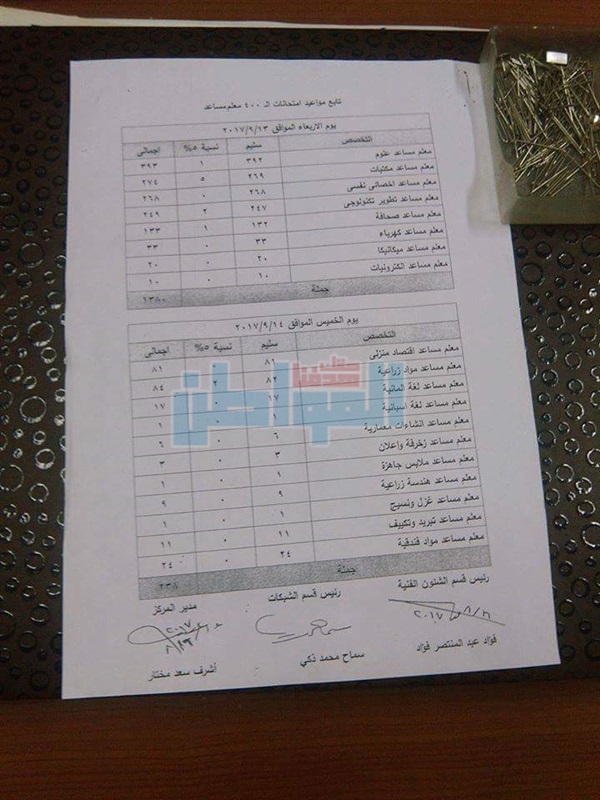 تابع مواعيد امتحانات الـ ٤٠٠ معلم مساعد
يوم الاربعاء الموافق ٢٠١٧/٩/١٣
التخصص سليم نسبة ٥% اجمالى
معلم مساعد علوم ٣٩٢ ١ ٣٩٣
معلم مساعد مكتبات ٢٦٩ ٥ ٢٧٤
معلم مساعد اخصائى نفسى ٢٦٨ ٠ ٢٦٨
معلم مساعد تطوير تكنولوجى ٢٤٧ ٢ ٢٤٩
معلم مساعد صحافة ١٣٢ ١ ١٣٣
معلم مساعد كهرباء ٣٣ ٠ ٣٣
معلم مساعد ميكانيكا ٢٠ ٠ ٢٠
معلم مساعد الكترونيات ١٠ ٠ ١٠
جملة ١٣٨٠
يوم الخميس الموافق ٢٠١٧/٩/١٤
التخصص سليم نسبة ٥% اجمالى
معلم مساعد اقتصاد منزلى ٨١ ٨١
معلم مساعد مواد زراعية ٨٢ ٢ ٨٤
معلم مساعد لغة المانية ١٧ ٠ ١٧
معلم مساعد لغة اسبانية ١ ٠ ١
معلم مساعد انشاءات معمارية ٦ ٠ ٦
معلم مساعد زخرفة واعلان ٣ ٠ ٣
معلم مساعد ملابس جاهزة ١ ٠ ١
معلم مساعد هندسة زراعية ٩ ٠ ٩
معلم مساعد غزل ونسيج ١ ٠ ١
معلم مساعد تبريد وتكييف ١١ ٠ ١١
معلم مساعد مواد فندقية ٢٤ ٠ ٢٤
جملة ٢٣٨
المواطن
رئيس قسم الشئون الفنية رئيس قسم الشبكات مدير المركز
فؤاد عبد المنتصر فؤاد سماح محمد ذكي أشرف سعد مختار